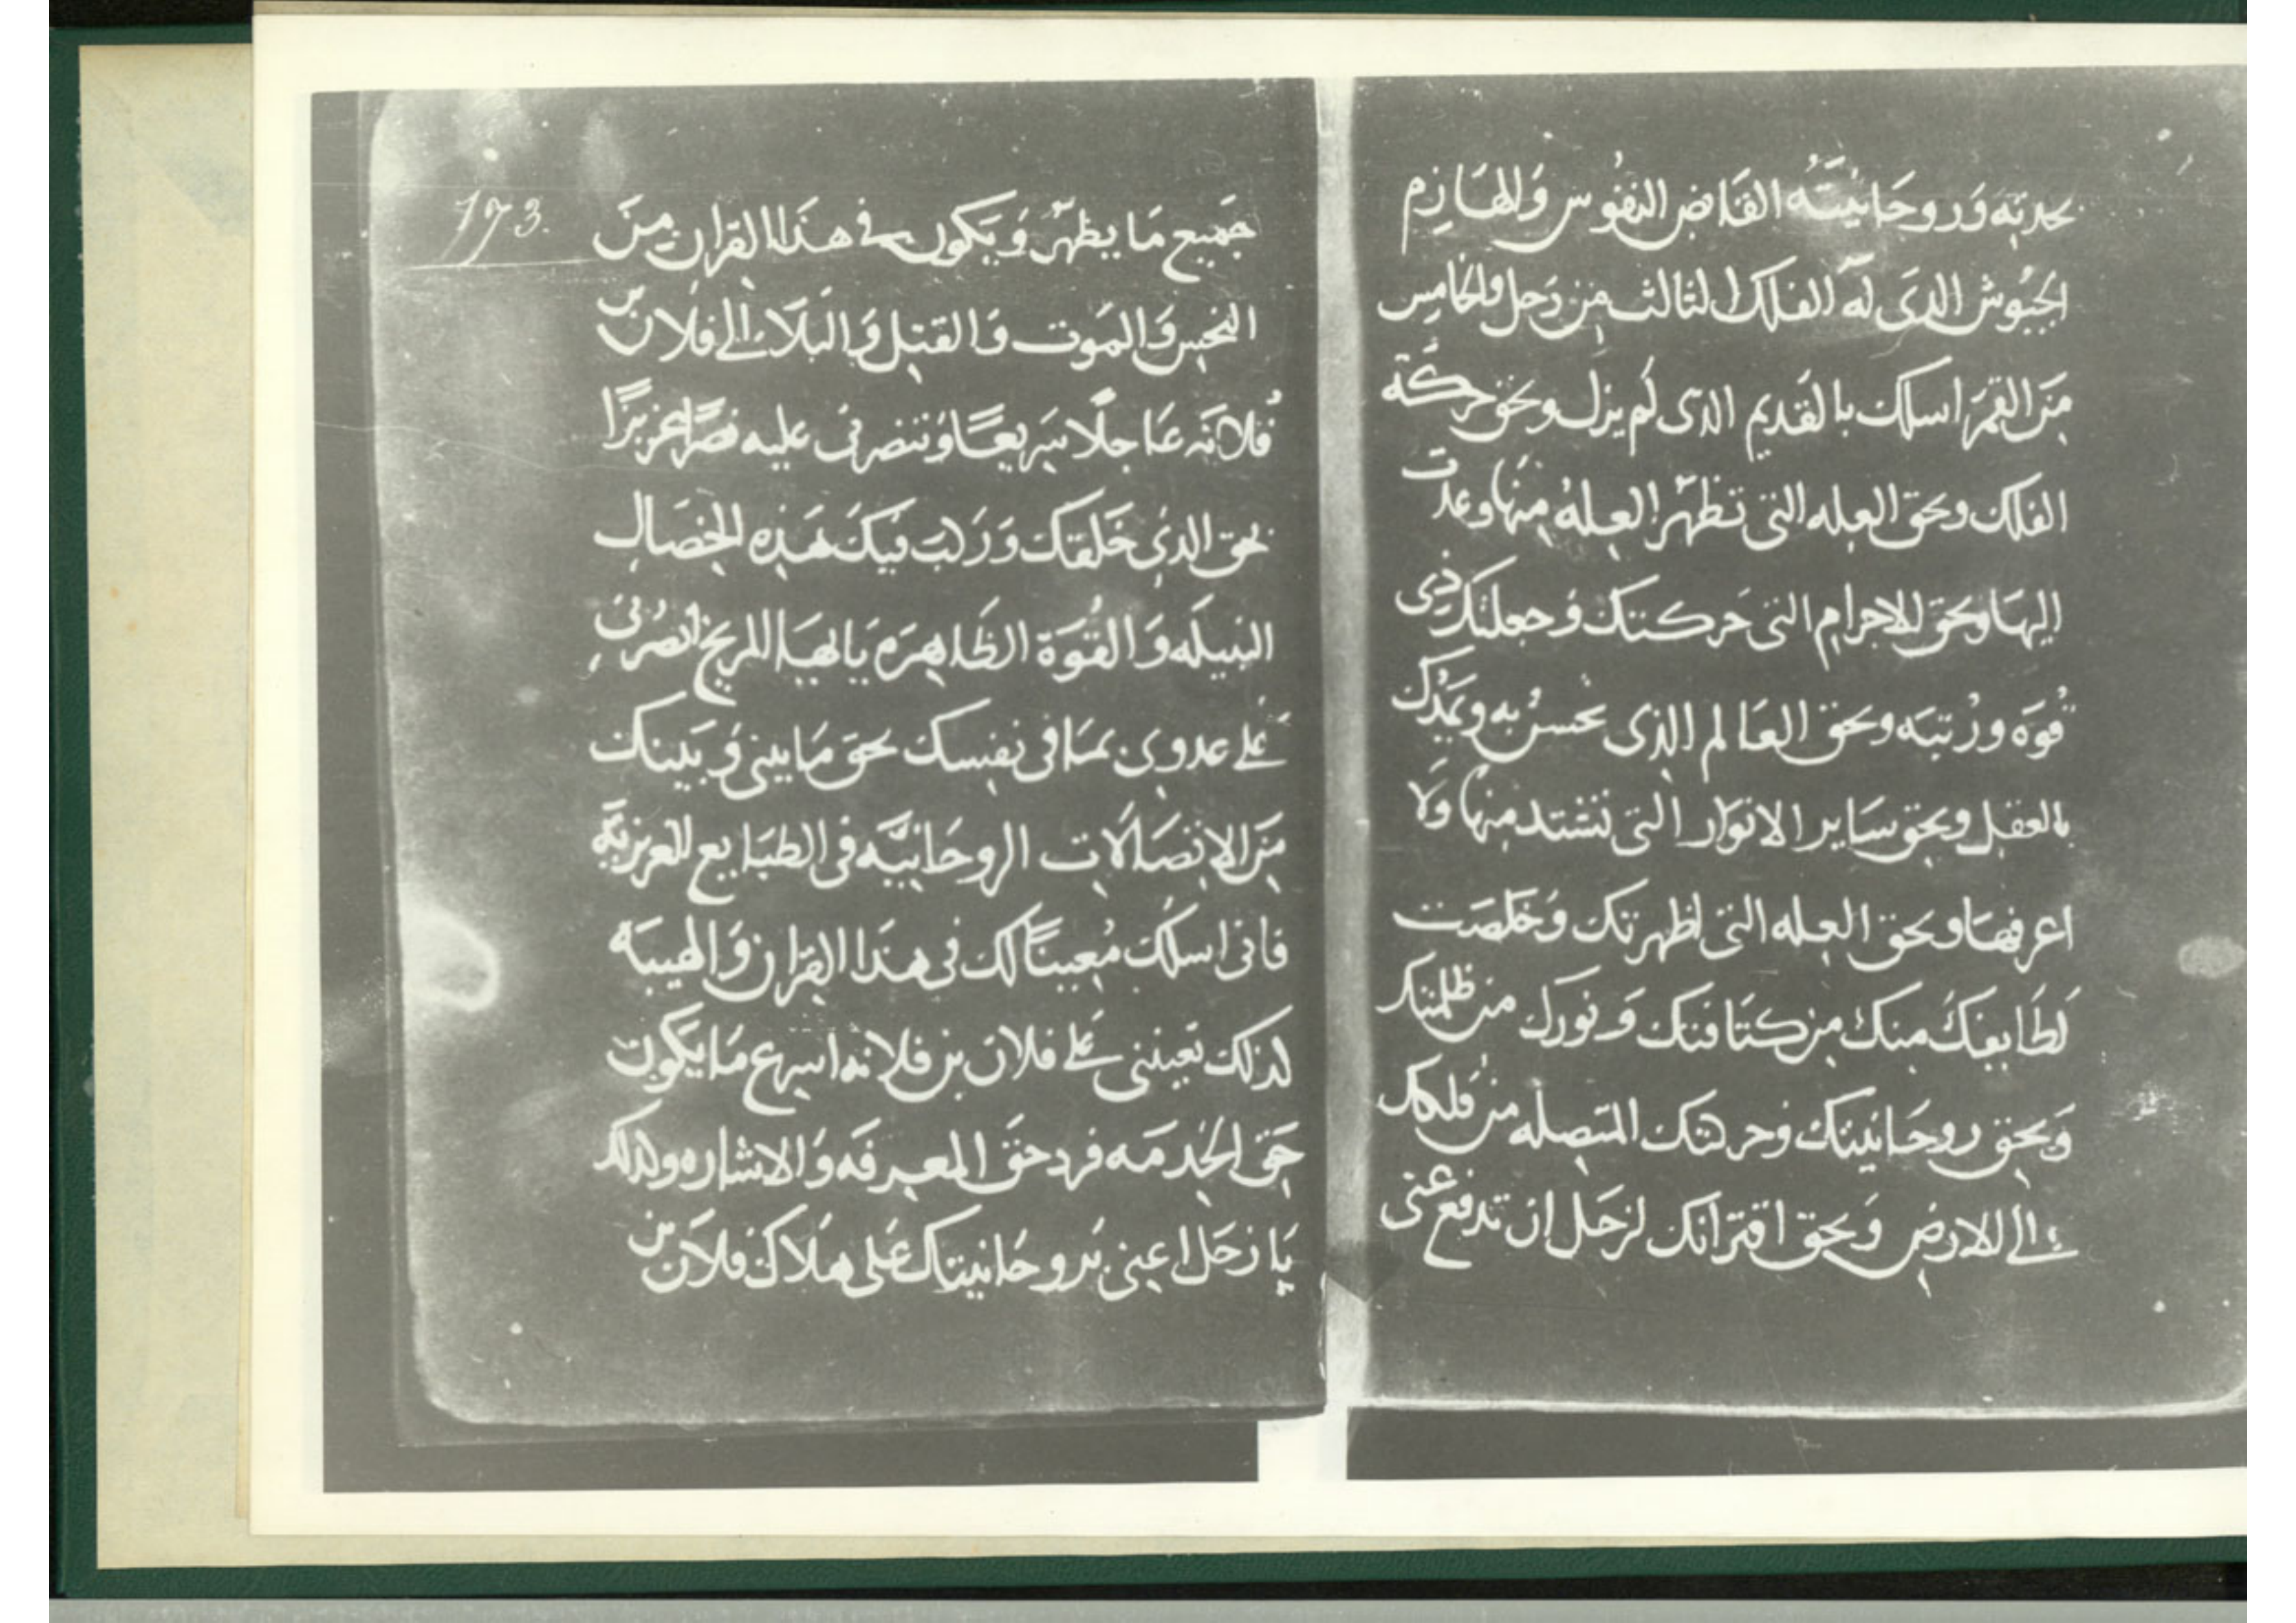 بحدته وَروحَانيَّتُه القَابض النفُوس وَالهَازِم
الجيُوش الدىَ لَه الفلك الثالث مِن زحل والخامِس
مِنَ القمَر اسلك بالقَديم الدى لَم يزل وبحق حركَة
الفلك وبحق العِله التى تظهرّ العِلهُ مِنهَا وعدت
اليهَا وبحق الاجرام التى حَركتك وَجعلتك ذى
قُوَه ورُتبَه وبحق العَالم الذِى تحسنُ به ويَمُدك
بالعقل وبحق سَاير الانوَار التى تشتد منهَا وَلا
اعرفهَا وبحق العِله التى اظهرتك وَخلصَت
لَطَايفكَ مِنك مِن كتَافتك وَنورك من ظلمتك
وَبحق روحَانيتك وحركتك المتصله من فلكك
الى الارض وَبحق اقترَانك لزحَل ان تدفع عنى
173.
جَميع مَا يظهرّ وَيَكون في هذَا القرانِ مِنَ
النحس وَالموَت وَالقتل وَالبَلَاء الى فلَان بن
فُلانَه عَاجلًا سَريعًا وَتنصرنى عليه نصرًا عزيزًا
بحق الدى خَلقك وَرَكبَ فيكَ هَذِه الخصَال
النبيلَه وَالقُوَة الظَاهِرَه يَا ايهَا المريخ انصُرنى
عَلى عدوى بمَا فى نفسِك بحق مَا بينى وَبَينك
مِنَ الاتصَالَات الروحَانيَّه فى الطبَايع الغريزيَّة
فانى اسلك مُعِينًا لك فى هذَا القِرَان وَالهيبَه
لذلك تعيننى عَلى فلان بن فلانه اسرع مَا يَكون
حَق الخِدمَه فرد حَق المعرفَه وَالاشاره ولذلك
يَا زحَل اعِنى بَروحَانيتك عَلى هلَاك فلَان بن